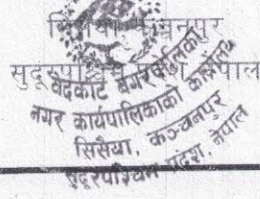 सिसैया, कञ्चनपुर
सुदूरपश्चिम प्रदेश, नेपाल
वेदकोट नगरपालिका
नगर कार्यपालिकाको कार्यालय
सिसैया, कञ्चनपुर
सुदूरपश्चिम प्रदेश, नेपाल